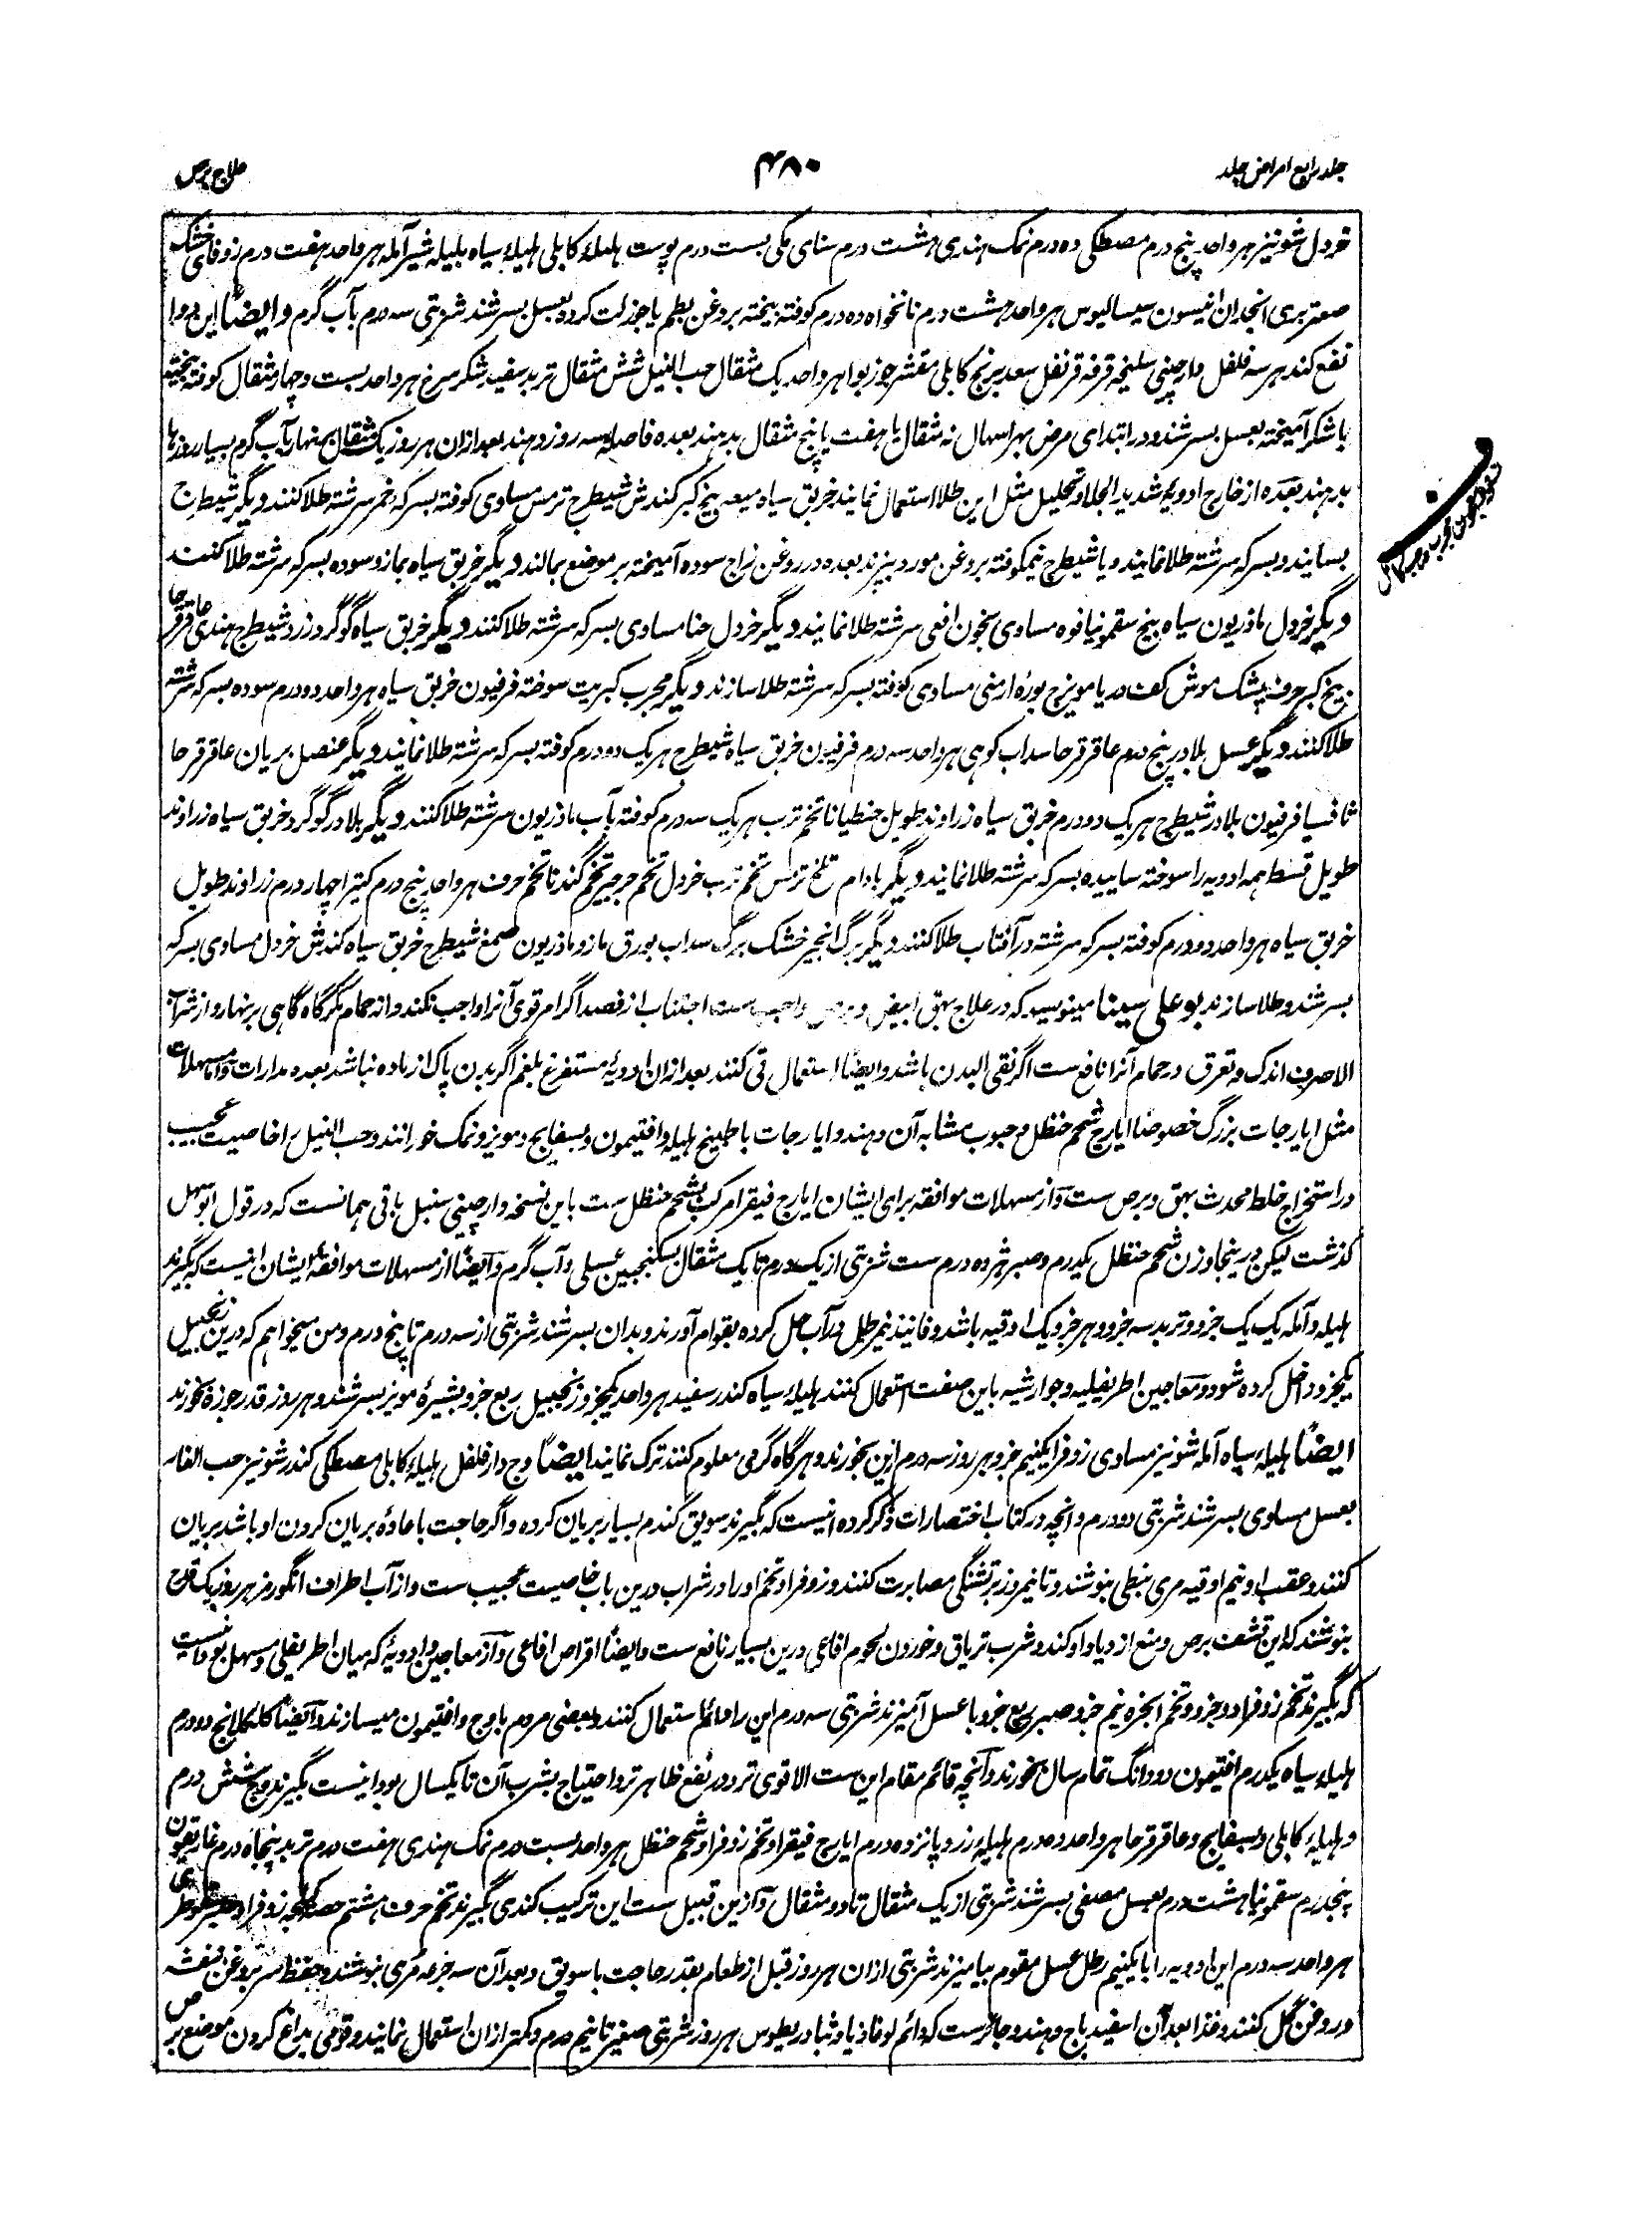 جلد رابع امراض جلد
۴۸۰
علاج برص
خردل شونیز هر واحد پنج درم مصطکی ده درم نمک هندی هشت درم سنای مکی بست درم پوست هلیلۀ کابلی هلیلۀ سیاه بلیله شیر آمله هر واحد هفت درم زوفای خشک
صعتر بری انجدان انیسون سیسالیوس هر واحد هشت درم نانخواه ده درم کوفته بیخته بروغن بطم یا جوز لت کرده بعسل بسرشند شربتی سه درم بآب گرم و ایضاً این دوا
نفع کند هر سه فلفل دارچینی سلیخه قرفه قرنفل سعد برنج کابلی مقشر جوزبوا هر واحد یک مثقال حب النیل شش مثقال تربد سفید شکر سرخ هر واحد بست و چهار مثقال کوفته بیخته
با شکر آمیخته بعسل بسرشند و در ابتدای مرض بهر اسهال نه مثقال یا هفت یا پنج مثقال بدهند بعده فاصله سه روز دهند بعد ازان هر روز یک مثقال بنهار بآب گرم بسیار روزها
بدهند بعده از خارج ادویۀ شدید الجلا و تحلیل مثل این طلا استعمال نمایند خربق سیاه میعه بیخ کبر کندش شیطرج ترمس مساوی کوفته بسرکه خمر سرشته طلا کنند دیگر شیطرج
بسایند و بسرکه سرشته طلا نمایند و یا شیطرج نیمکوفته بروغن مورد بپزند بعده در روغن زاج سوده آمیخته بر موضع بمالند دیگر خربق سیاه بمازو سوده بسرکه سرشته طلا کنند
دیگر خردل ماذریون سیاه بیخ سقمونیا فوه مساوی بخون افعی سرشته طلا نمایند دیگر خردل حنا مساوی بسرکه سرشته طلا کنند دیگر خربق سیاه گوگرد زرد شیطرج هندی عاقرقرحا
زنیخ کبر حرف پشک موش کف دریا مویزج بورۀ ارمنی مساوی کوفته بسرکه سرشته طلا سازند دیگر مجرب کبریت سوخته فرفیون خربق سیاه هر واحد دو درم سوده بسرکه سرشته
طلا کنند دیگر عسل بلادر پنج درم عاقرقرحا سداب کوهی هر واحد سه درم فرفیون خربق سیاه شیطرج هر یک دو درم کوفته بسرکه سرشته طلا نمایند دیگر عنصل بریان عاقرقرحا
ثافسیا فرفیون بلادر شیطرج هر یک دو درم خربق سیاه زراوند طویل جنطیانا تخم ترب هر یک سه درم کوفته بآب ماذریون سرشته طلا کنند دیگر بلادر گوگرد خربق سیاه زراوند
طویل قسط همه ادویه را سوخته ساییده بسرکه سرشته طلا نمایند دیگر بادام تلخ ترمس تخم ترب خردل تخم جرجیر تخم گندنا تخم حرف هر واحد پنج درم کتیرا چهار درم زراوند طویل
خربق سیاه هر واحد دو درم کوفته بسرکه سرشته در آفتاب طلا کنند دیگر برگ انجیر خشک برگ سداب بورق مازو ماذریون صمغ شیطرج خربق سیاه کندش خردل مساوی بسرکه
بسرشند و طلا سازند بو علی سینا مینویسد که در علاج بهق ابیض و برص واجب ست اجتناب از فصد اگر امر قوی آنرا واجب نکند و از حمام مگر گاه گاهی بر نهار و از شراب
الا صرف اندک و تعرق در حمام آنرا نافع ست اگر نقی البدن باشد و ایضاً استعمال قی کنند بعد ازان ادویۀ مستفرغ بلغم اگر بدن پاک از ماده نباشد بعده مدارات و اما مسهلات
مثل ایارجات بزرگ خصوصاً ایارج شحم حنظل و حبوب مشابه آن دهند و ایارجات با طبیخ هلیله و افتیمون و بسفایج و مویز و نمک خورانند و حب النیل را خاصیت عجیب
در استخراج خلط محدث بهق و برص ست و از مسهلات موافقه برای ایشان ایارج فیقرا مرکب بشحم حنظل ست باین نسخه دارچینی سنبل باقی همانست که در قول ابوسهل
گذشت لیکن درینجا وزن شحم حنظل یکدرم و صبر شهر ده درم ست شربتی از یک درم تا یک مثقال بسکنجبین عسلی و آب گرم و ایضاً از مسهلات موافقۀ ایشان اینست که بگیرند
هلیله و آمله یک یک جزو و تربد سه جزو و هر جزو یک اوقیه باشد و فانیذ نیم رطل در آب حل کرده بقوام آورند و بدان بسرشند شربتی از سه درم تا پنج درم و من میخواهم که درین زنجبیل
یکجزو داخل کرده شود و معاجین اطریفلیه و جوارشیه باین صفت استعمال کنند هلیلۀ سیاه کندر سفید هر واحد یکجزو زنجبیل ربع جزو بشیرۀ مویز بسرشند و هر روز قدر جوزه بخورند
ایضاً هلیلۀ سیاه آمله شونیز مساوی زوفرا یکنیم جزو هر روز سه درم ازین بخورند و هر گاه گرمی معلوم کنند ترک نمایند ایضاً وج دارفلفل هلیلۀ کابلی مصطکی کندر شونیز حب الغار
بعسل مساوی بسرشند شربتی دو درم و انچه در کتاب اختصارات ذکر کرده اینست که بگیرند سویق گندم بسیار بریان کرده و اگر حاجت باعادۀ بریان کردن او باشد بریان
کنند و عقب او نیم اوقیه مری نبطی بنوشند و تا نیمروز بر تشنگی مصابرت کنند و زوفرا و تخم او را در شراب درین باب خاصیت عجیب ست و از آب اطراف انگور هر روز یک قدح
بنوشند که این قشف برص و منع ازدیاد او کند و شرب تریاق و خوردن لحوم افاعی درین بسیار نافع ست و ایضاً اقراص افاعی و از معاجین و ادویۀ که میان اطریفلی و مسهل بود اینست
که بگیرند تخم زوفرا دو جزو و تخم انجره نیم جزو صبر ربع جزو با عسل آمیزند شربتی سه درم این را دائم استعمال کنند و بعضی مردم با وج و افتیمون میسازند و ایضاً کلکلانج دو درم
هلیلۀ سیاه یکدرم افتیمون دو دانگ تمام سال بخورند و آنچه قائم مقام این ست الا قوی تر و در نفع ظاهر تر و احتیاج بشرب آن تا یکسال بود اینست بگیرند وج شش درم
و هلیلۀ کابلی و بسفایج و عاقرقرحا هر واحد ده درم هلیلۀ زرد پانزده درم ایارج فیقرا و تخم زوفرا و شحم حنظل هر واحد بست درم نمک هندی هفت درم تربد پنجاه درم غاریقون
پنجدرم سقمونیا هشت درم بعسل مصفی بسرشند شربتی از یک مثقال تا دو مثقال و ازین قبیل ست این ترکیب کندی بگیرند تخم حرف هشتم حصه کیلجه زوفرا و صبر سقوطری
هر واحد سه درم این ادویه را با یکنیم رطل عسل مقوم بیامیزند شربتی ازان هر روز قبل از طعام بقدر حاجت با سویق و بعد آن سه جرعه مری بنوشند و حفظ سر بروغن بنفشه
و روغن گل کنند و غذا بعد آن اسفیدباج دهند و جائزست که دائم لوغاذیا و ثبادریطوس هر روز شربتی صغیر تا نیم درم و کمتر ازان استعمال نمایند و قومی بداغ کردن موضع برص